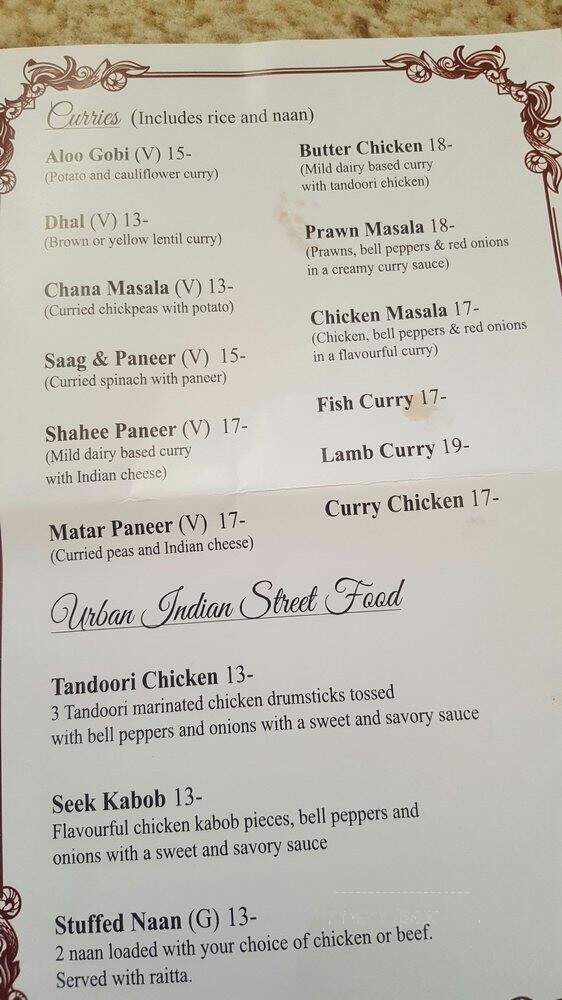 Curries (Includes rice and naan)
Aloo Gobi (V) 15-
(Potato and cauliflower curry)
Dhal (V) 13-
(Brown or yellow lentil curry)
Chana Masala (V) 13-
(Curried chickpeas with potato)
Saag & Paneer (V) 15-
(Curried spinach with paneer)
Shahee Paneer (V) 17-
(Mild dairy based curry
with Indian cheese)
Matar Paneer (V) 17-
(Curried peas and Indian cheese)
Butter Chicken 18-
(Mild dairy based curry
with tandoori chicken)
Prawn Masala 18-
(Prawns, bell peppers & red onions
in a creamy curry sauce)
Chicken Masala 17-
(Chicken, bell peppers & red onions
in a flavourful curry)
Fish Curry 17-
Lamb Curry 19-
Curry Chicken 17-
Urban Indian Street Food
Tandoori Chicken 13-
3 Tandoori marinated chicken drumsticks tossed
with bell peppers and onions with a sweet and savory sauce
Seek Kabob 13-
Flavourful chicken kabob pieces, bell peppers and
onions with a sweet and savory sauce
Stuffed Naan (G) 13-
2 naan loaded with your choice of chicken or beef.
Served with raitta.